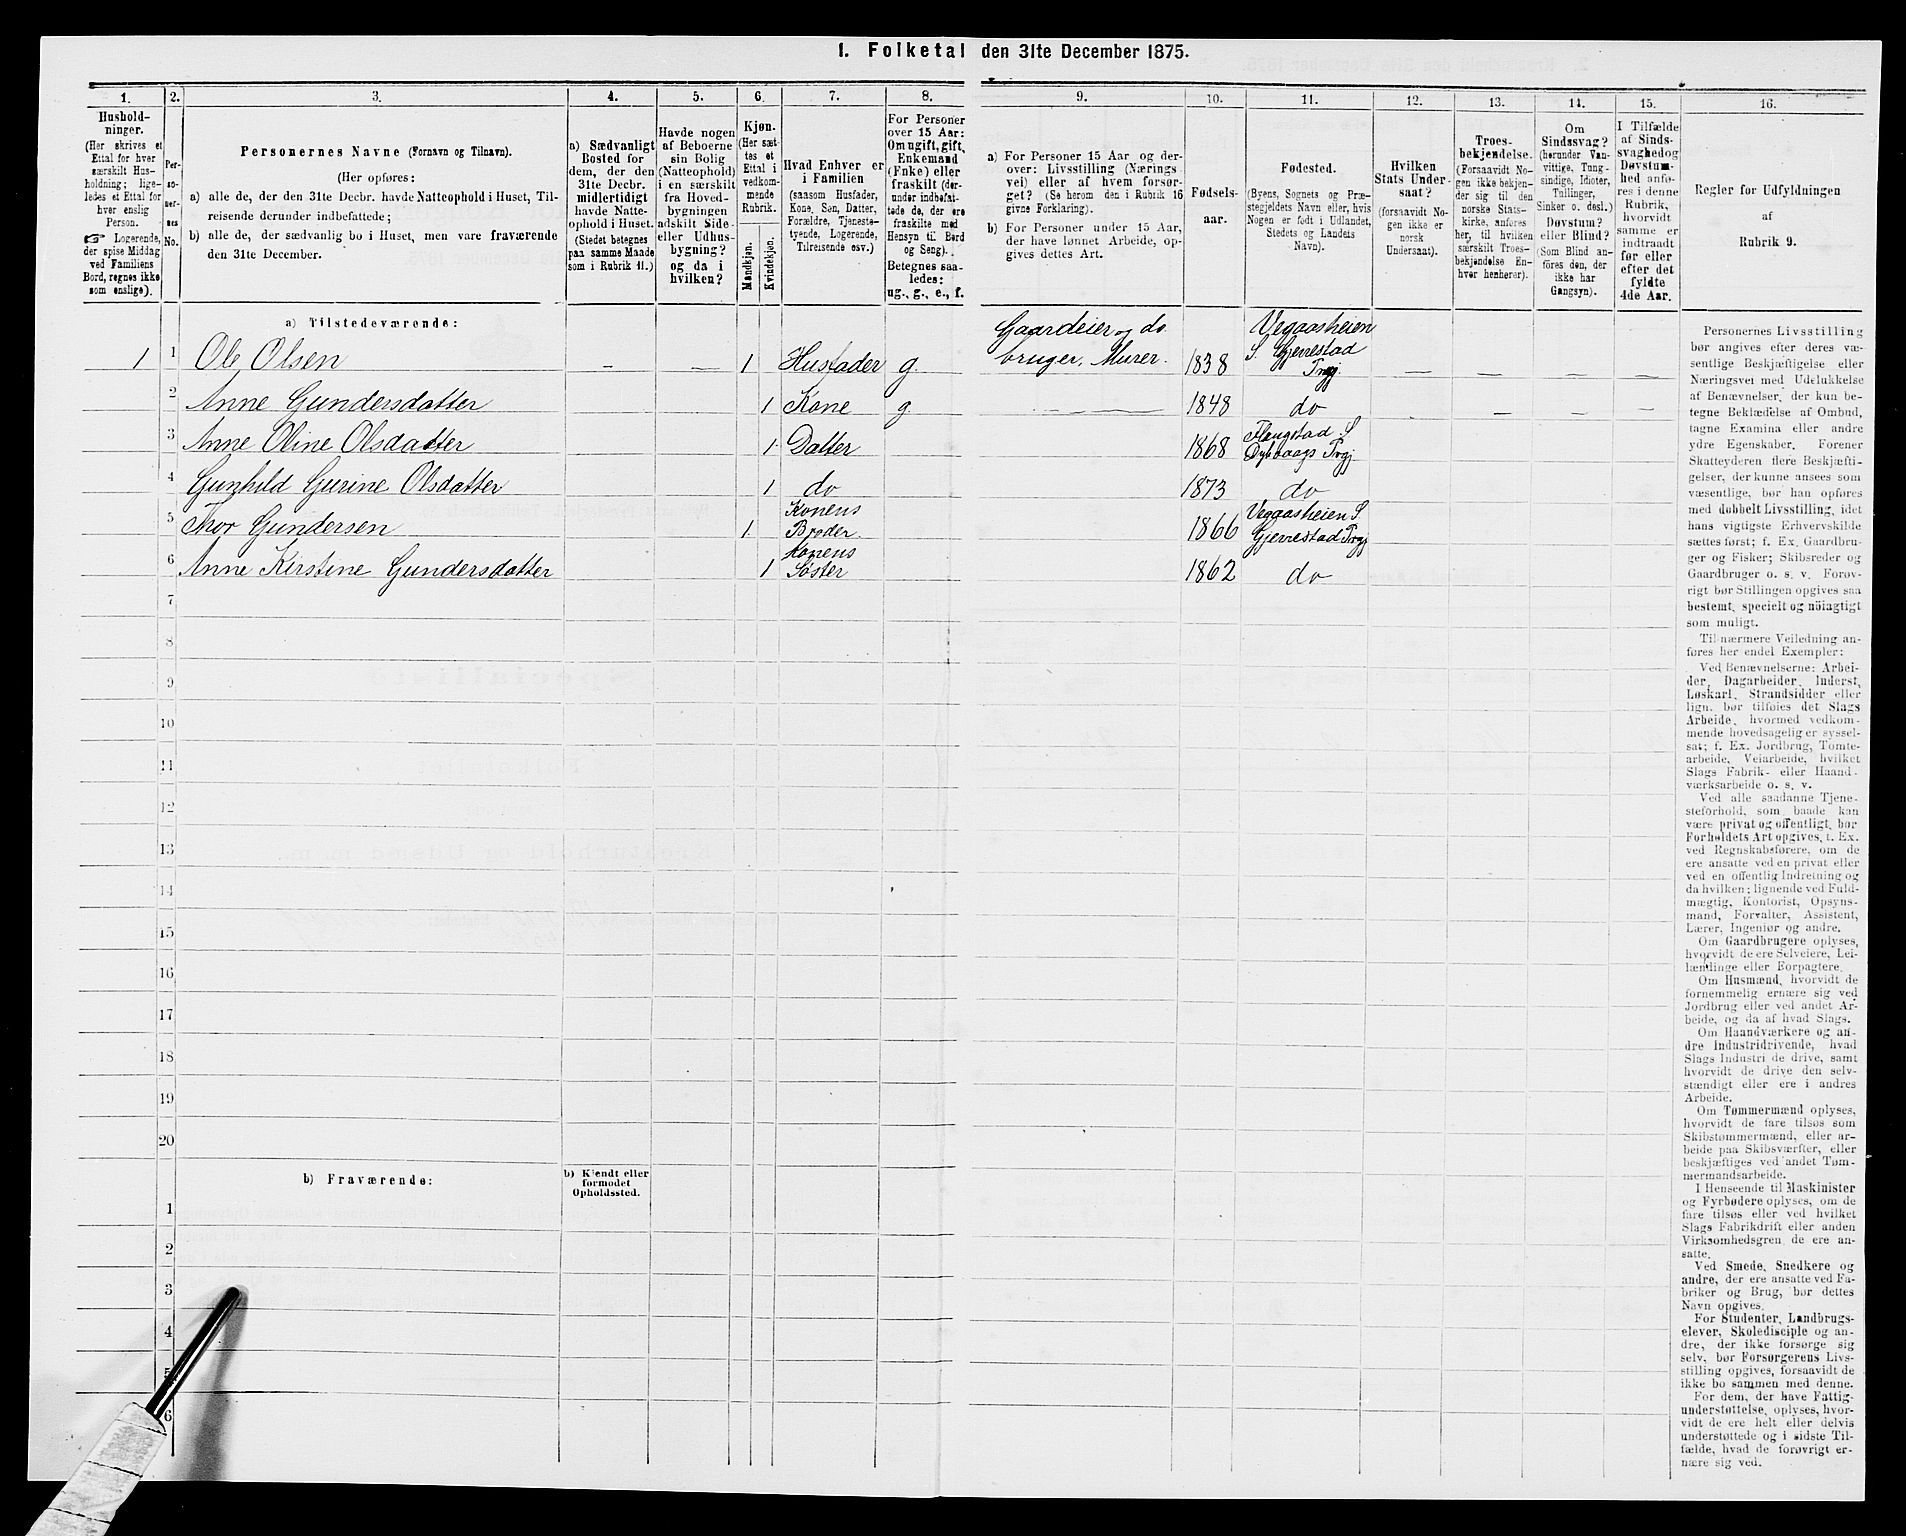 1. Folketal den 31te December 1875.
1. 2. 3. 4. 5. 6. 7. 8. 9. 10. 11. 12. 13. 14. 15. 16.
Hushold-
ninger.
(Her skrives et
Ettal for hver
særskilt Hus-
holdning; lige-
ledes et Ettal for
hver enslig
Person.
☞ Logerende,
der spise Middag
ved Familiens
Bord, regnes ikke
som enslige).
Per-
so-
ner-
nes
No.
Personernes Navne (Fornavn og Tilnavn).
(Her opføres:
a) alle de, der den 31te Decbr. havde Natteophold i Huset, Til-
reisende derunder indbefattede;
b) alle de, der sædvanlig bo i Huset, men vare fraværende
den 31te December.
a) Sædvanligt
Bosted for
dem, der den
31te Decbr.
midlertidigt
havde Natte-
ophold i Huset.
(Stedet betegnes
paa samme Maade
som i Rubrik 11.)
Havde nogen
af Beboerne
sin Bolig
(Natteophold)
i en særskilt
fra Hoved-
bygningen
adskilt Side-
eller Udhus-
bygning?
og da i
hvilken?
Kjøn.
(Her sæt-
tes et
Ettal i
vedkom-
mende
Rubrik.
Mandkjøn.
Kvindekjøn.
Hvad Enhver er
i Familien
(saasom Husfader,
Kone, Søn, Datter,
Forældre, Tjeneste-
tyende, Logerende,
Tilreisende osv.)
For Personer
over 15 Aar:
Om ugift, gift,
Enkemand
(Enke) eller
fraskilt (der-
under indbefat-
tede de, der ere
fraskilte med
Hensyn til Bord
og Seng).
Betegnes saa-
ledes:
ug., g., e., f.
a) For Personer 15 Aar og der-
over: Livsstilling (Nærings
vei) eller af hvem forsør-
get? (Se herom den i Rubrik 16
givne Forklaring).
b) For Personer under 15 Aar,
der have lønnet Arbeide, op-
gives dettes Art.
Fødsels-
aar.
Fødested.
(Byens, Sognets og Præ-
stegjeldets Navn eller, hvis
Nogen er født i Udlandet,
Stedets og Landets
Navn).
Hvilken
Stats Under-
saat?
(forsaavidt No-
gen ikke er
norsk
Undersaat).
Troes-
bekjendelse.
(Forsaavidt No-
gen ikke bekjen-
der sig til den
norske Stats-
kirke, anføres
her, til hvilken
særskilt Troes-
bekjendelse En-
hver henhører).
Om
Sindssvag?
(herunder Van-
vittige, Tung-
sindige, Idioter,
Tullinger,
Sinker o. desl.)
Døvstum?
eller Blind?
(Som Blind an-
føres den, der
ikke har
Gangsyn).
I Tilfælde
af Sinds-
svaghed og
Døvstum-
hed anfø-
res i denne
Rubrik,
hvorvidt
samme er
indtraadt
før eller
efter det
fyldte
4de Aar.
Regler før Udfyldningen
af
Rubrik 9.
a) Tilstedeværende:
1 1 Ole Olsen — — 1 Husfader g. Gaardeier og do. bruger, Murer. 1838 Vegaasheien S. Gjerrestad Prgj. — — — —
2 Anne Gundersdatter 1 Kone g. — 1848 do — — — —
3 Anne Oline Olsdatter 1 Datter 1868
4 Gunhild Gurine Olsdatter 1 do 1873 do
5 Thor Gundersen 1 Konens Broder 1866 Vegaasheien S Gjerrestad Prgj
6 Anne Kirstine Gundersdatter 1 Konens Søster 1862 do
7
8
9
10
11
12
13
14
15
16
17
18
19
20
b) Fraværende:
b) Kjendt eller
formodet
Opholdssted.
1
2
3
4
5
6
Personernes Livsstilling
bør angives efter deres væ-
sentlige Beskjæftigelse eller
Næringsvei med Udelukkelse
af Benævnelser, der kun be-
tegne Beklædelse af Ombud,
tagne Examina eller andre
ydre Egenskaber. Forener
Skatteyderen flere Beskjæfti-
gelser, der kunne ansees som
væsentlige, bør han opføres
med dobbelt Livsstilling, idet
hans vigtigste Erhvervskilde
sættes først; f. Ex. Gaardbru-
ger og Fisker; Skibsreder og
Gaardbruger o. s. v. Forøv-
rigt bør Stillingen opgives saa
bestemt, specielt og nöiagtigt
som muligt.
Til nærmere Veiledning an-
føres her endel Exempler:
Ved Benævnelserne: Arbei-
der, Dagarbeider, Inderst,
Løskarl, Strandsidder eller
lign. bør tilføies det Slags
Arbeide, hvormed vedkom-
mende hovedsagelig er syssel-
sat; f. Ex. Jordbrug, Tomte-
arbeide, Veiarbeide, hvilket
Slags Fabrik- eller Haand-
værksarbeide o. s. v.
Ved alle saadanne Tjene-
steforhold, som baade kan
være privat og offentligt, bør
Forholdets Art opgives, t. Ex.
ved Regnskabsførere, om de
ere ansatte ved en privat eller
ved en offentlig Indretning og
da hvilken; lignende ved Fuld-
mægtig, Kontorist, Opsyns-
mand, Forvalter, Assistent,
Lærer, Ingeniør og andre.
Om Gaardbrugere oplyses,
hvorvidt de ere Selveiere, Lei-
lændinge eller Forpagtere.
Om Husmænd, hvorvidt de
fornemmelig ernære sig ved
Jordbrug eller ved andet Ar-
beide, og da af hvad Slags.
Om Haandværkere og an-
dre Industridrivende, hvad
Slags Industri de drive, samt
hvorvidt de drive den selv-
stændigt eller ere i andres
Arbeide.
Om Tømmermænd oplyses,
hvorvidt de fare tilsøs som
Skibstømmermænd, eller ar-
beide paa Skibsværfter, eller
beskjæftiges ved andet Tøm-
mermandsarbeide.
I Henseende til Maskinister
og Fyrbødere oplyses, om de
fare tilsøs eller ved hvilket
Slags Fabrikdrift eller anden
Virksomhedsgren de ere an-
satte.
Ved Smede, Snedkere og
andre, der ere ansatte ved Fa-
briker og Brug, bør dettes
Navn opgives.
For Studenter, Landbrugs-
elever, Skoledisciple og an-
dre, der ikke forsørge sig
selv, bør Forsørgerens Livs-
stilling opgives, forsaavidt de
ikke bo sammen med denne.
For dem, der have Fattig-
understøttelse, oplyses, hvor-
vidt de ere helt eller delvis
understøttede og i sidste Til-
fælde, hvad de forøvrigt er-
nære sig ved.